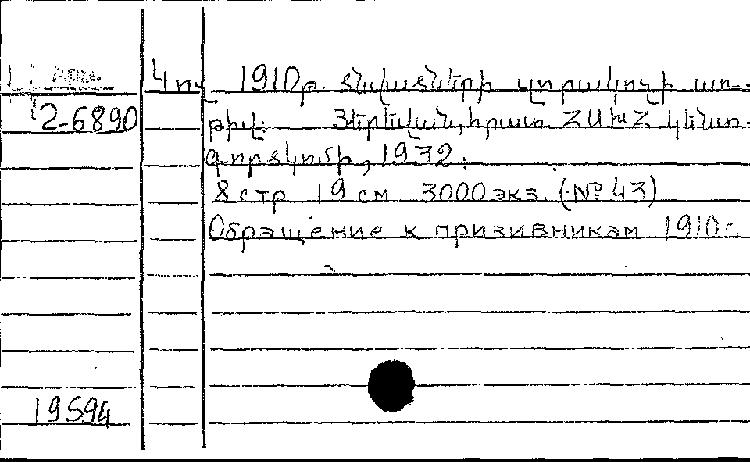 Կոչ 1910թ. ծնվածների զորակոչի առ-
2-6890
թիվ. Յերեվան, հրատ. ՀԱԽՀ կենտ.
գործկոմի, 1932.
8 стр 19 см 3000 экз. (№ 43)
Обращение к призивникам 1910 г.
19594